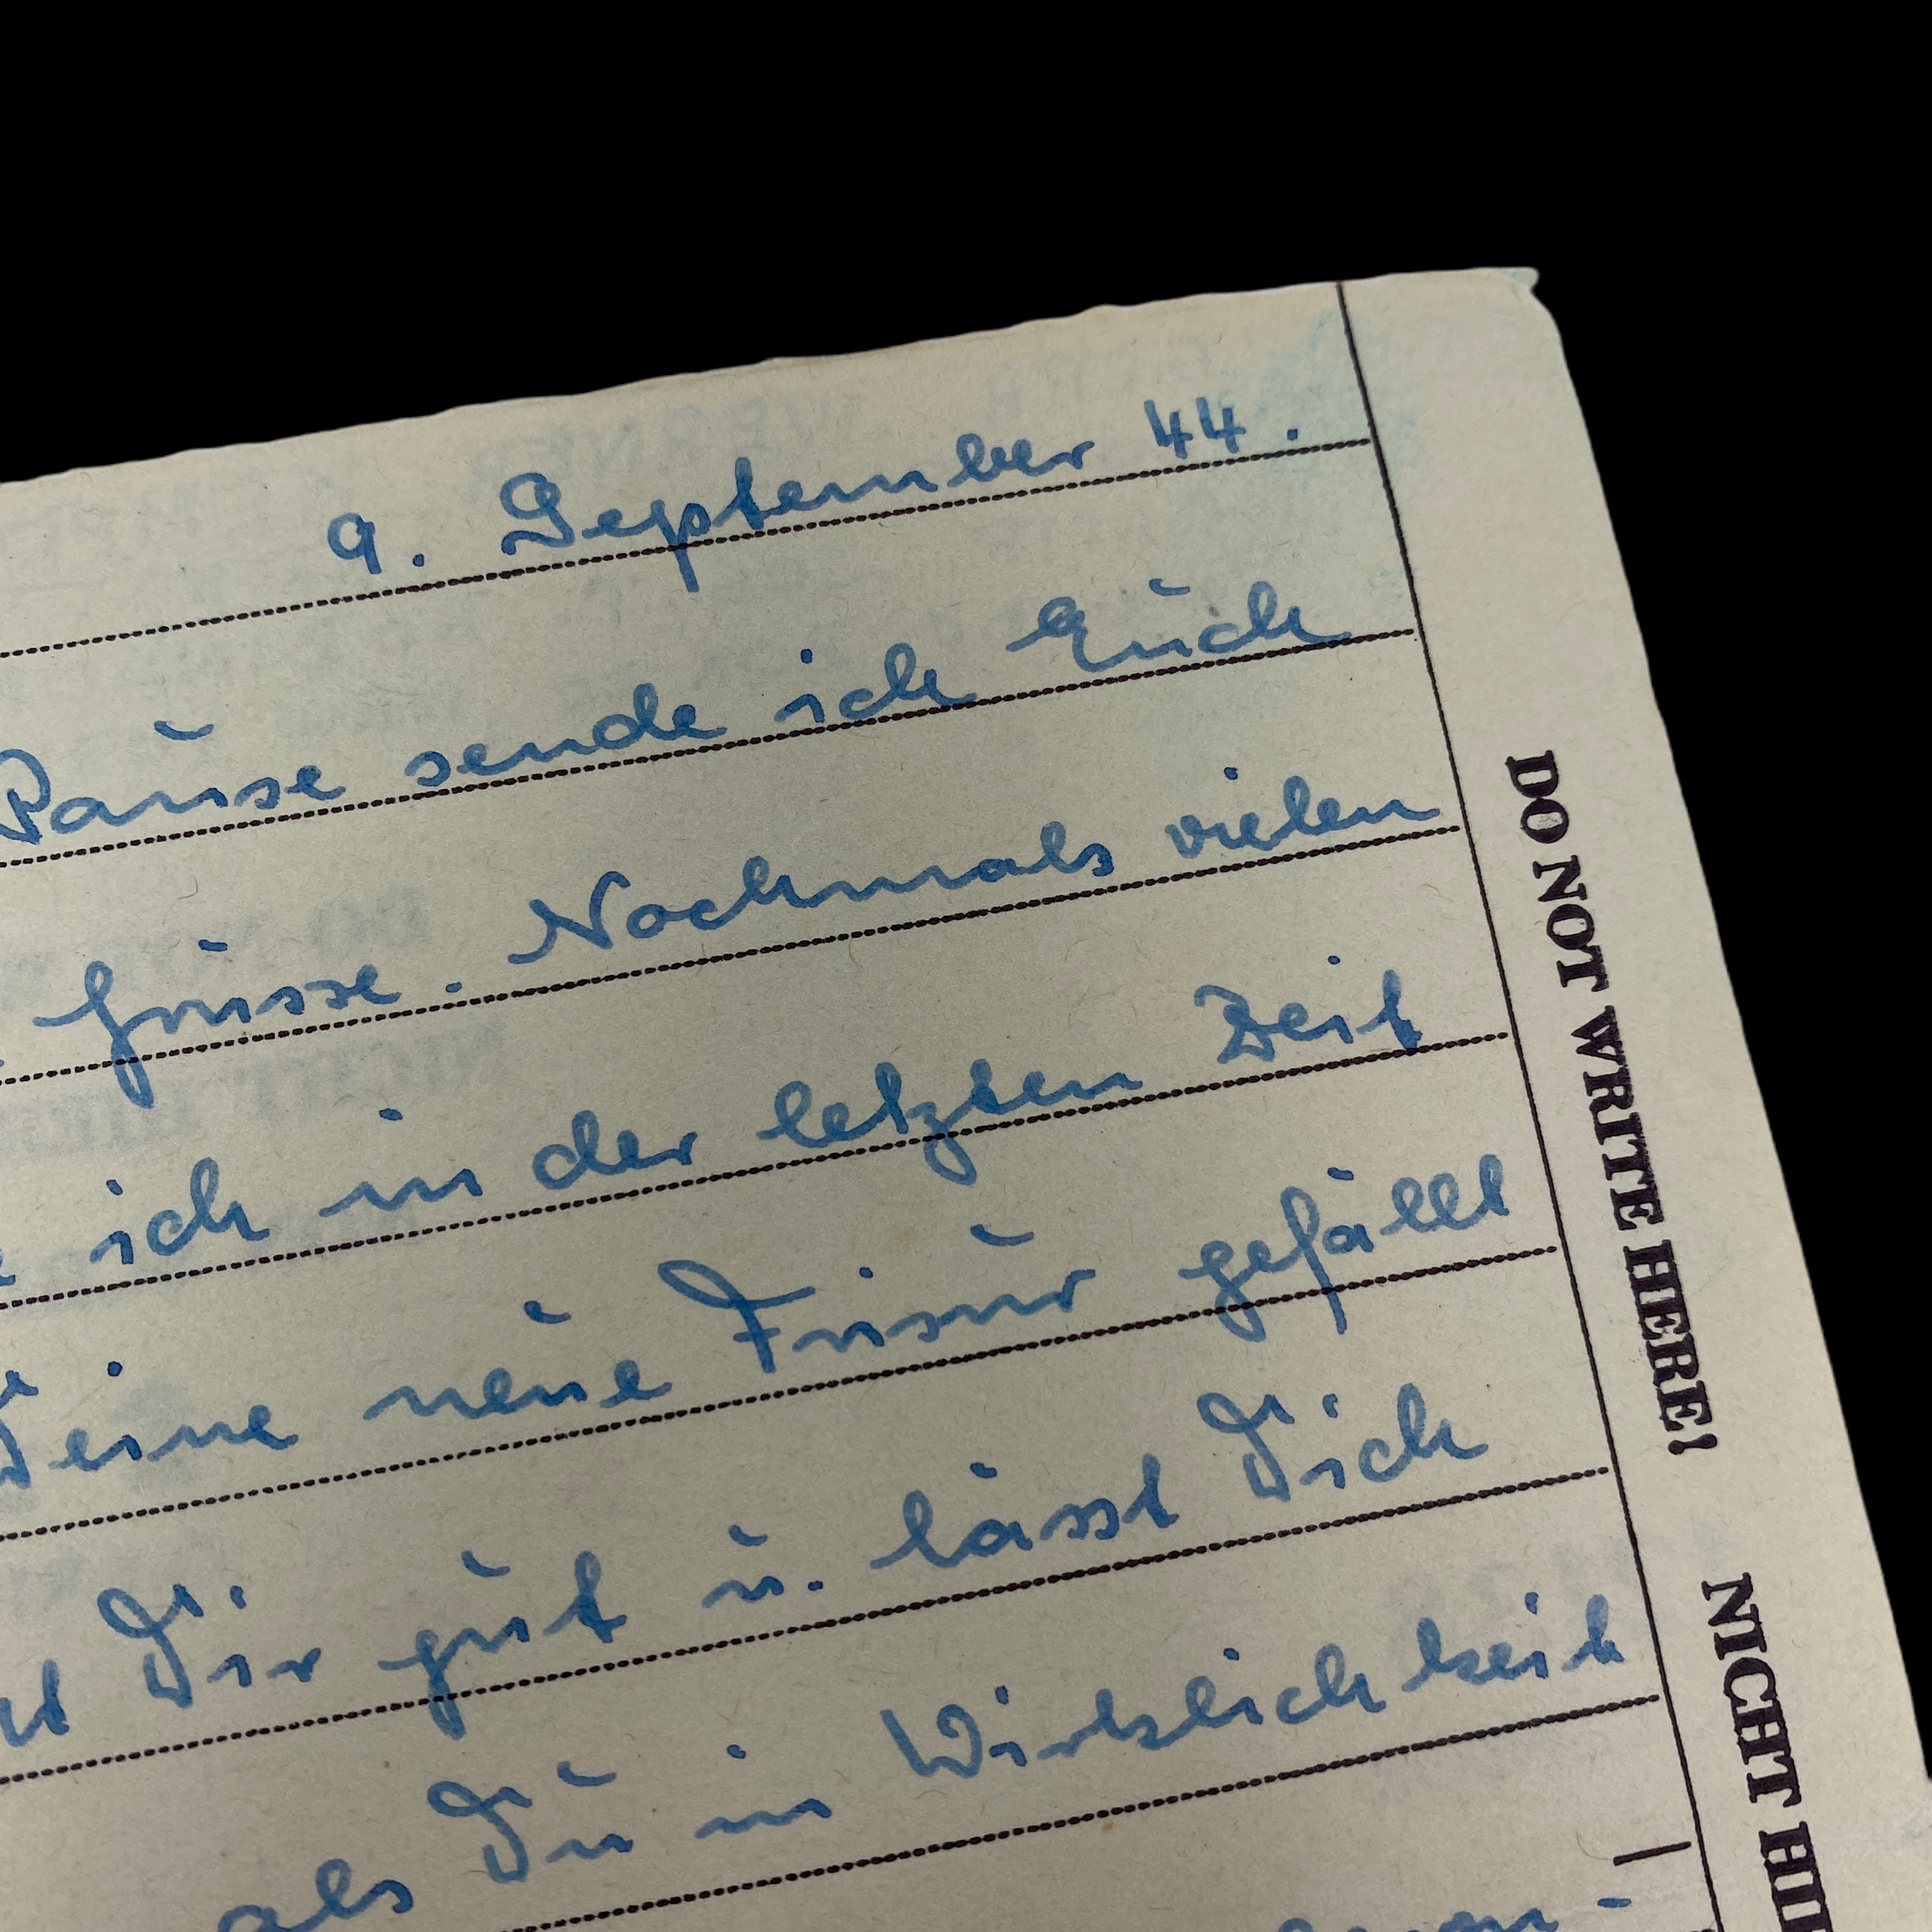 9. September 44.
Pause sende ich Euch
Grüsse. Nochmals vielen
ich in der letzten Zeit
Deine neue Frisur gefällt
Dir gut u. lässt Dich
als Du in Wirklichkeit
DO NOT WRITE HERE!
NICHT HI